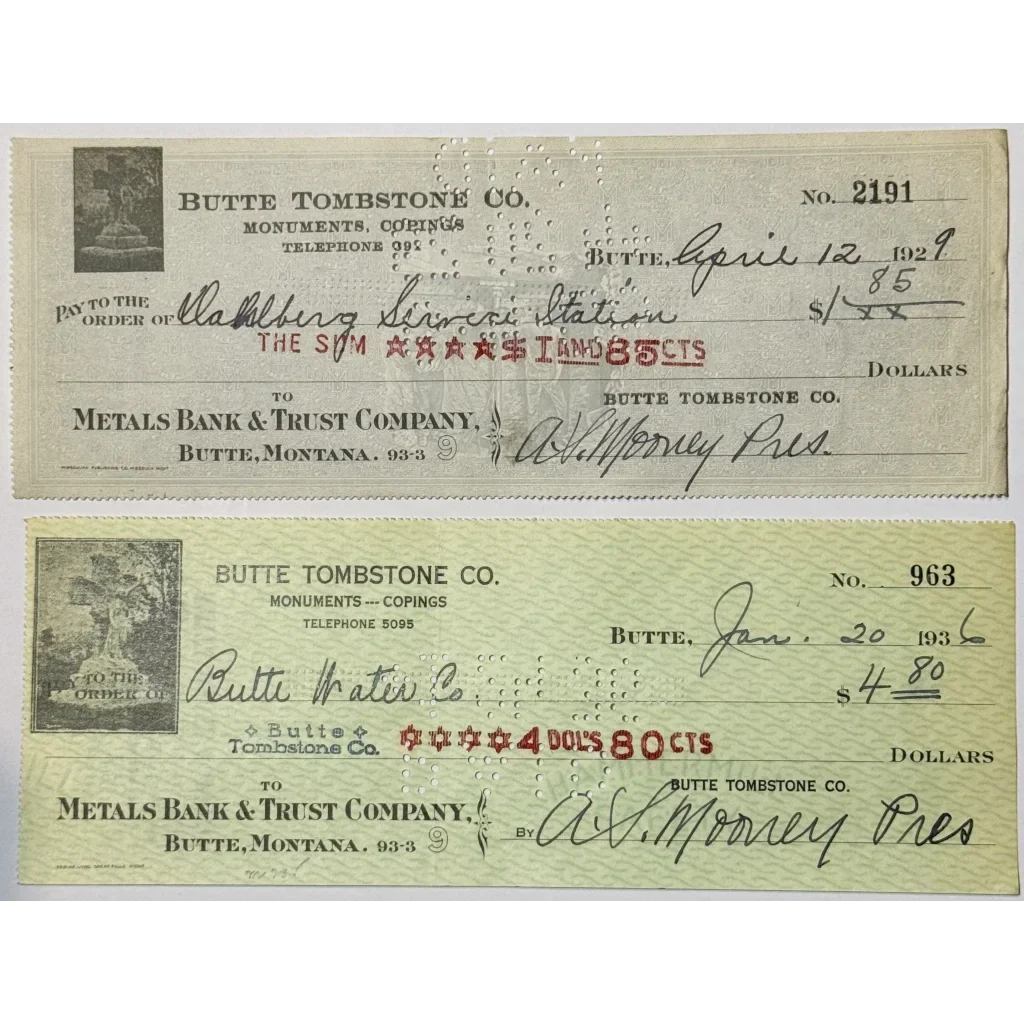 BUTTE TOMBSTONE CO.
NO. 2191
MONUMENTS, COPINGS
TELEPHONE
BUTTE, April 12 1929
PAY TO THE ORDER OF Dahlberg Service Station $1 85/xx
THE SUM ★★★★$1 AND 85 CTS
DOLLARS
TO
BUTTE TOMBSTONE CO.
METALS BANK & TRUST COMPANY,
BUTTE, MONTANA. 93-3 9
A. S. Mooney Pres.
BUTTE TOMBSTONE CO.
NO. 963
MONUMENTS --- COPINGS
TELEPHONE 5095
BUTTE, Jan. 20 1936
PAY TO THE ORDER OF Butte Water Co. $4 80
Butte
Tombstone Co.
✡✡✡✡4 DOL'S 80 CTS
DOLLARS
TO
BUTTE TOMBSTONE CO.
METALS BANK & TRUST COMPANY,
BUTTE, MONTANA. 93-3 9
BY A. S. Mooney Pres